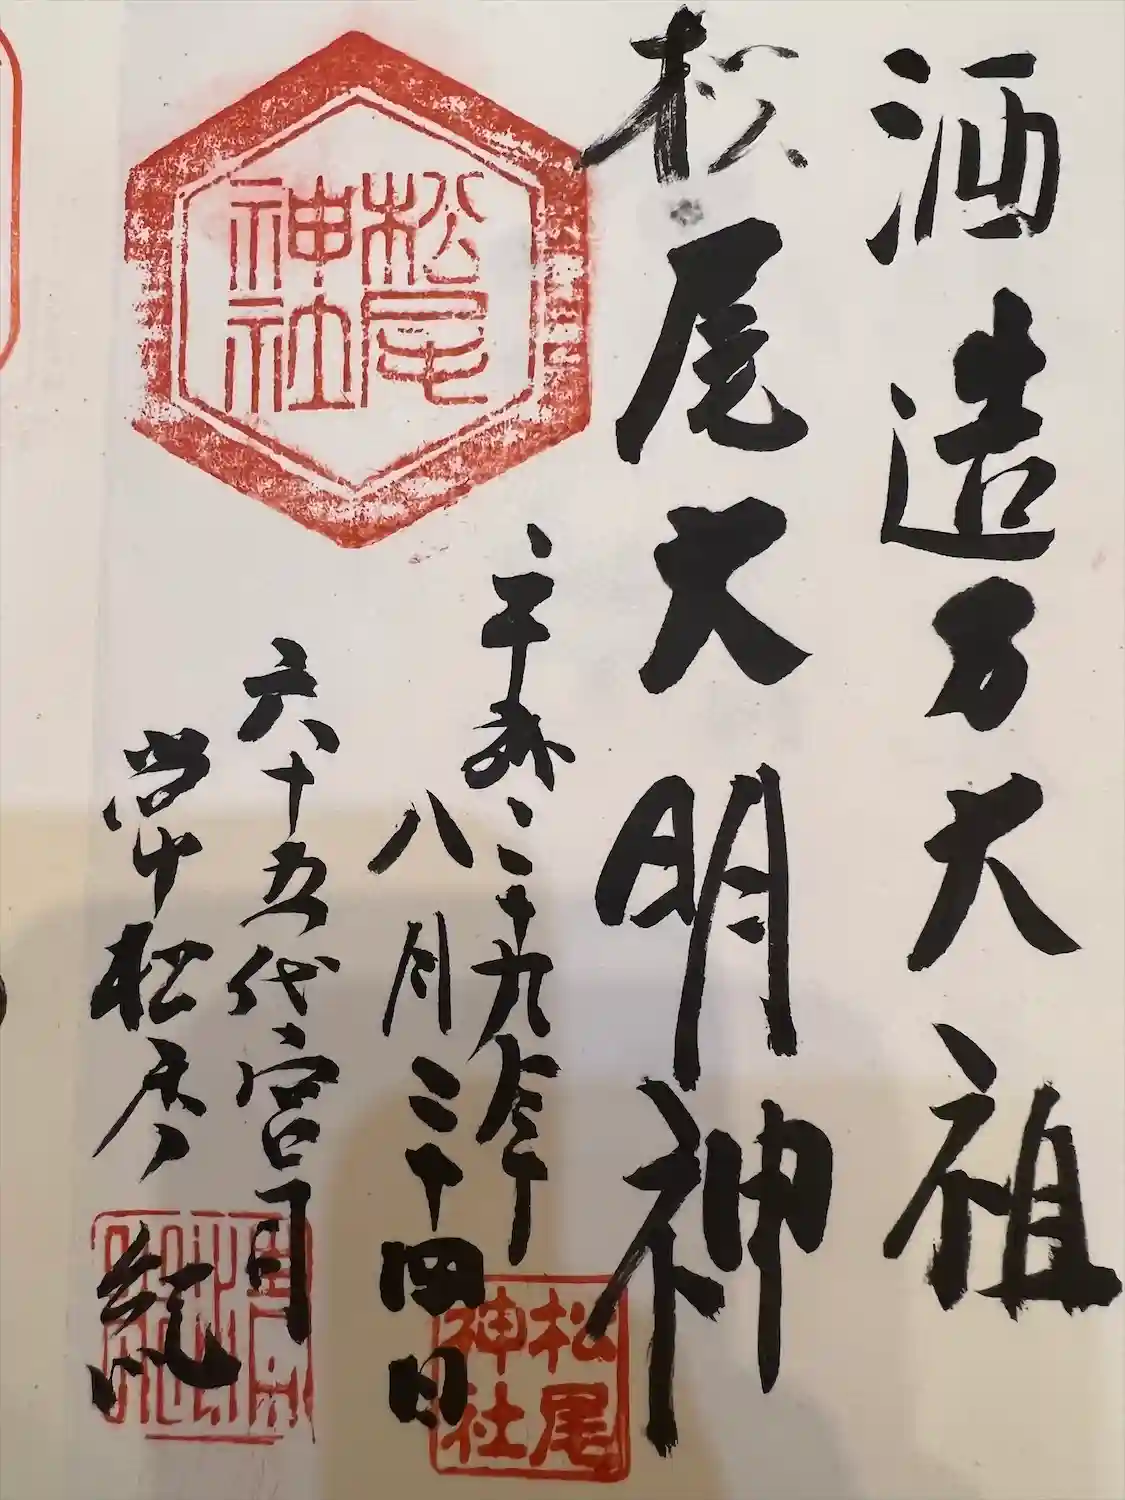 酒造万大祖
松尾大明神
松尾神社
平成二十九年
八月二十四日
松尾神社
六十五代宮司
松彦